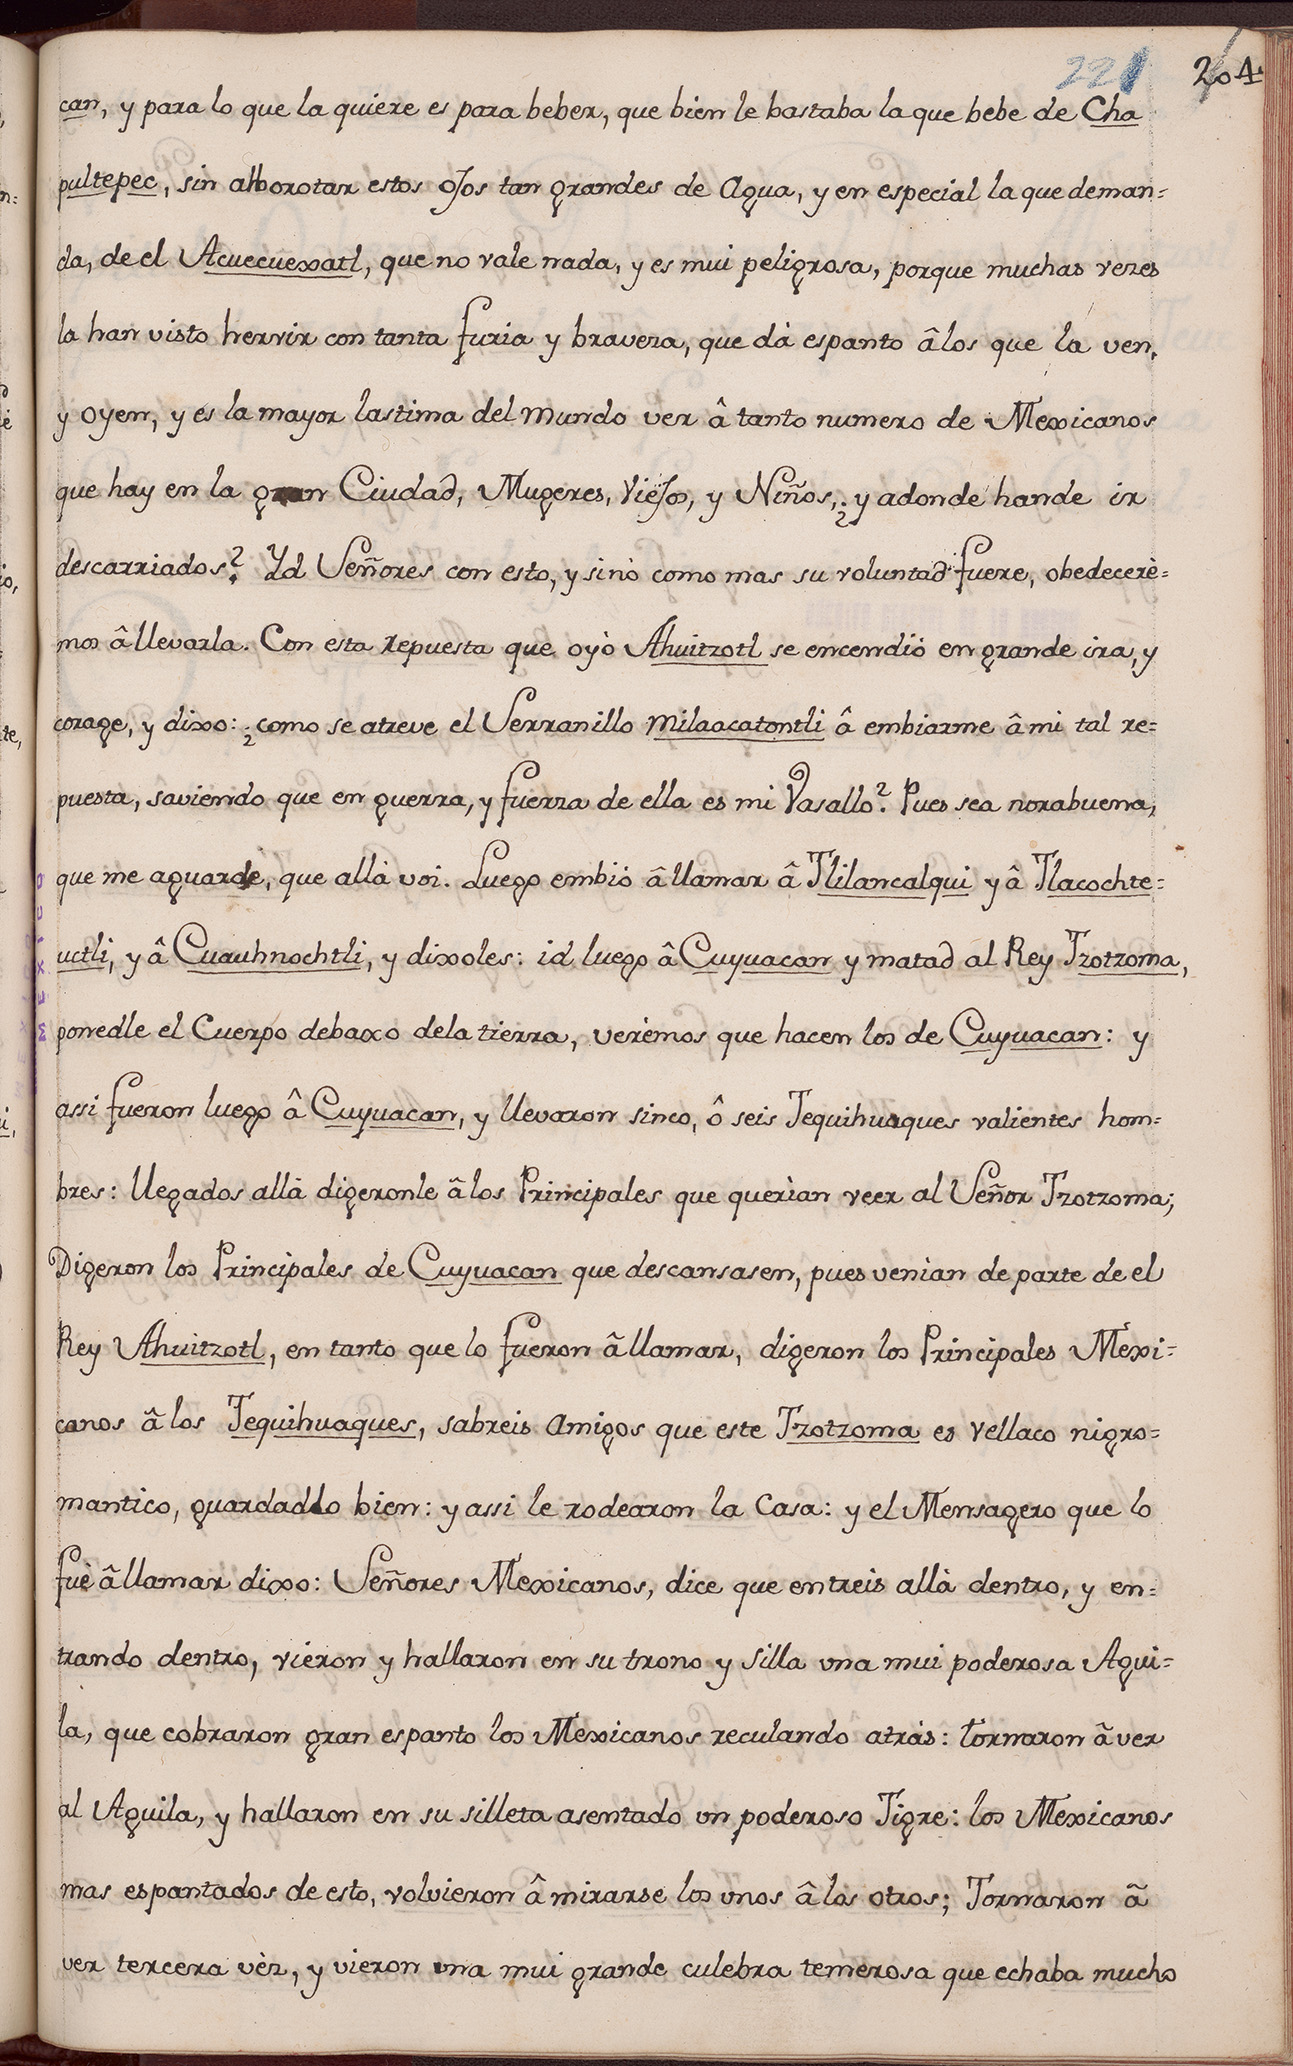 221 204
can, y para lo que la quiere es para beber, que bien le bastaba la que bebe de Cha
pultepec, sin alborotar estos ojos tan grandes de Agua, y en especial la que deman=
da, de el Acuecuexatl, que no vale nada, y es mui peligrosa, porque muchas vezes
la han visto hervir con tanta furia y braveza, que dà espanto â los que la ven,
y oyen, y es la mayor lastima del mundo ver â tanto numero de Mexicanos
que hay en la gran Ciudad, Mugeres, Viejos, y Niños, ¿y adonde hande ir
descarriados? Yd Señores con esto, y sinò como mas su voluntad fuere, obedecerè=
mos â llevarla. Con esta repuesta que oyò Ahuitzotl se encendiò en grande ira, y
corage, y dixo: ¿como se atreve el Serranillo Milaacatontli â embiarme â mi tal re=
puesta, saviendo que en guerra, y fuerza de ella es mi Vasallo? Pues sea norabuena,
que me aguarde, que allà voi. Luego embiò â llamar â Tlilancalqui y â Tlacochte=
uctli, y â Cuauhnochtli, y dixoles: id luego â Cuyuacan y matad al Rey Tzotzoma,
ponedle el Cuerpo debaxo dela tierra, verèmos que hacen los de Cuyuacan: y
assi fueron luego â Cuyuacan, y llevaron sinco, ô seis Tequihuaques valientes hom=
bres: llegados allà digeronle â los Principales que querìan veer al Señor Tzotzoma;
Digeron los Principales de Cuyuacan que descansasen, pues venian de parte de el
Rey Ahuitzotl, en tanto que lo fueron â llamar, digeron los Principales Mexi=
canos â los Tequihuaques, sabreis Amigos que este Tzotzoma es vellaco nigro=
mantico, guardadlo bien: y assi le rodearon la Casa: y el Mensagero que lo
fuè â llamar dixo: Señores Mexicanos, dice que entreis allà dentro, y en=
trando dentro, vieron y hallaron en su trono y silla una mui poderosa Agui=
la, que cobraron gran espanto los Mexicanos reculando atràs: tornaron â ver
al Aguila, y hallaron en su silleta asentado un poderoso Tigre: los Mexicanos
mas espantados de esto, volvieron â mirarse los unos â los otros; Tornaron â
ver tercera vèz, y vieron una mui grande culebra temerosa que echaba mucho